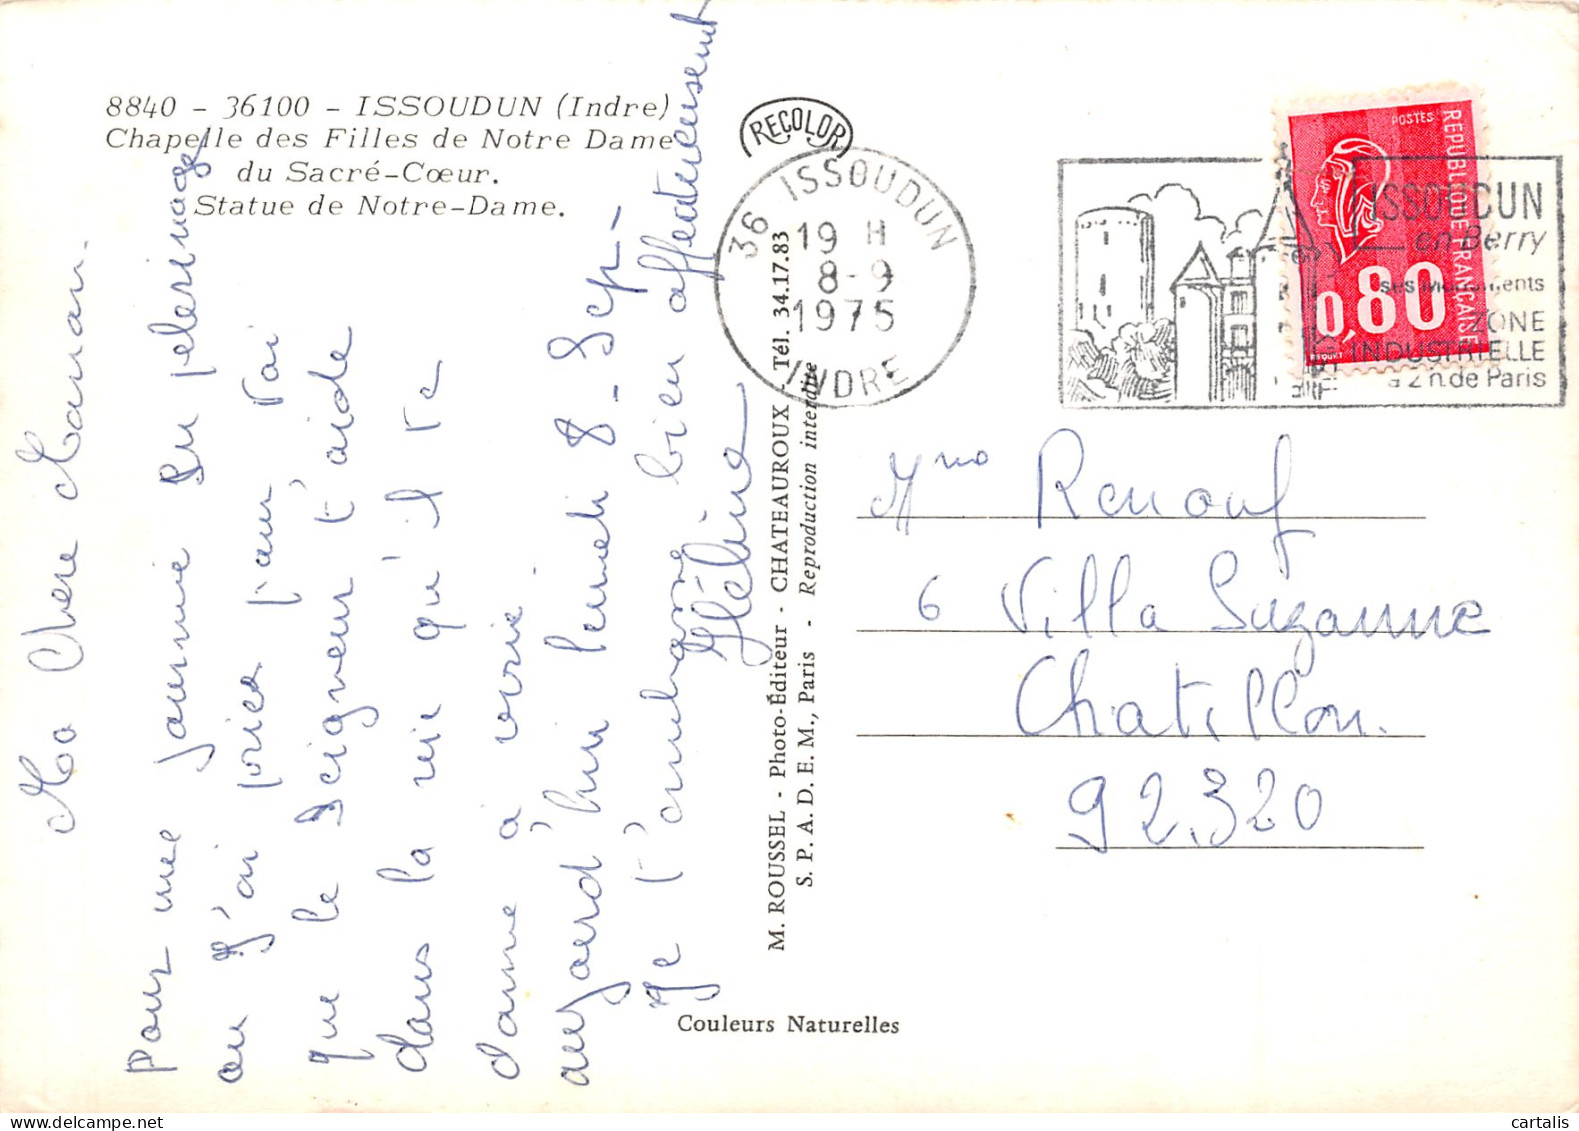 8840 - 36100 - ISSOUDUN (Indre)
Chapelle des Filles de Notre Dame
du Sacré-Cœur.
Statue de Notre-Dame.
Ma Chère Maman.
pour une journée en pelerinage
ou J'ai priée pour Toi
que le Seigneur t'aide
dans la vie qu'il te
donne à vivre
aujourd'hui lundi 8 - Sep -
Je t'embrasse bien affectueusement
Hélène
RECOLOR
M. ROUSSEL - Photo-Éditeur - CHATEAUROUX - Tél. 34.17.83
S. P. A. D. E. M., Paris - Reproduction interdite
Couleurs Naturelles
36 ISSOUDUN
19 H
8-9
1975
INDRE
POSTES
REPUBLIQUE FRANÇAISE
0,80
ISSOUDUN
en Berry
ses Monuments
ZONE
INDUSTRIELLE
a 2 h. de Paris
Mme Renouf
6 Villa Suzanne
Chatillon.
92.320
cartalis